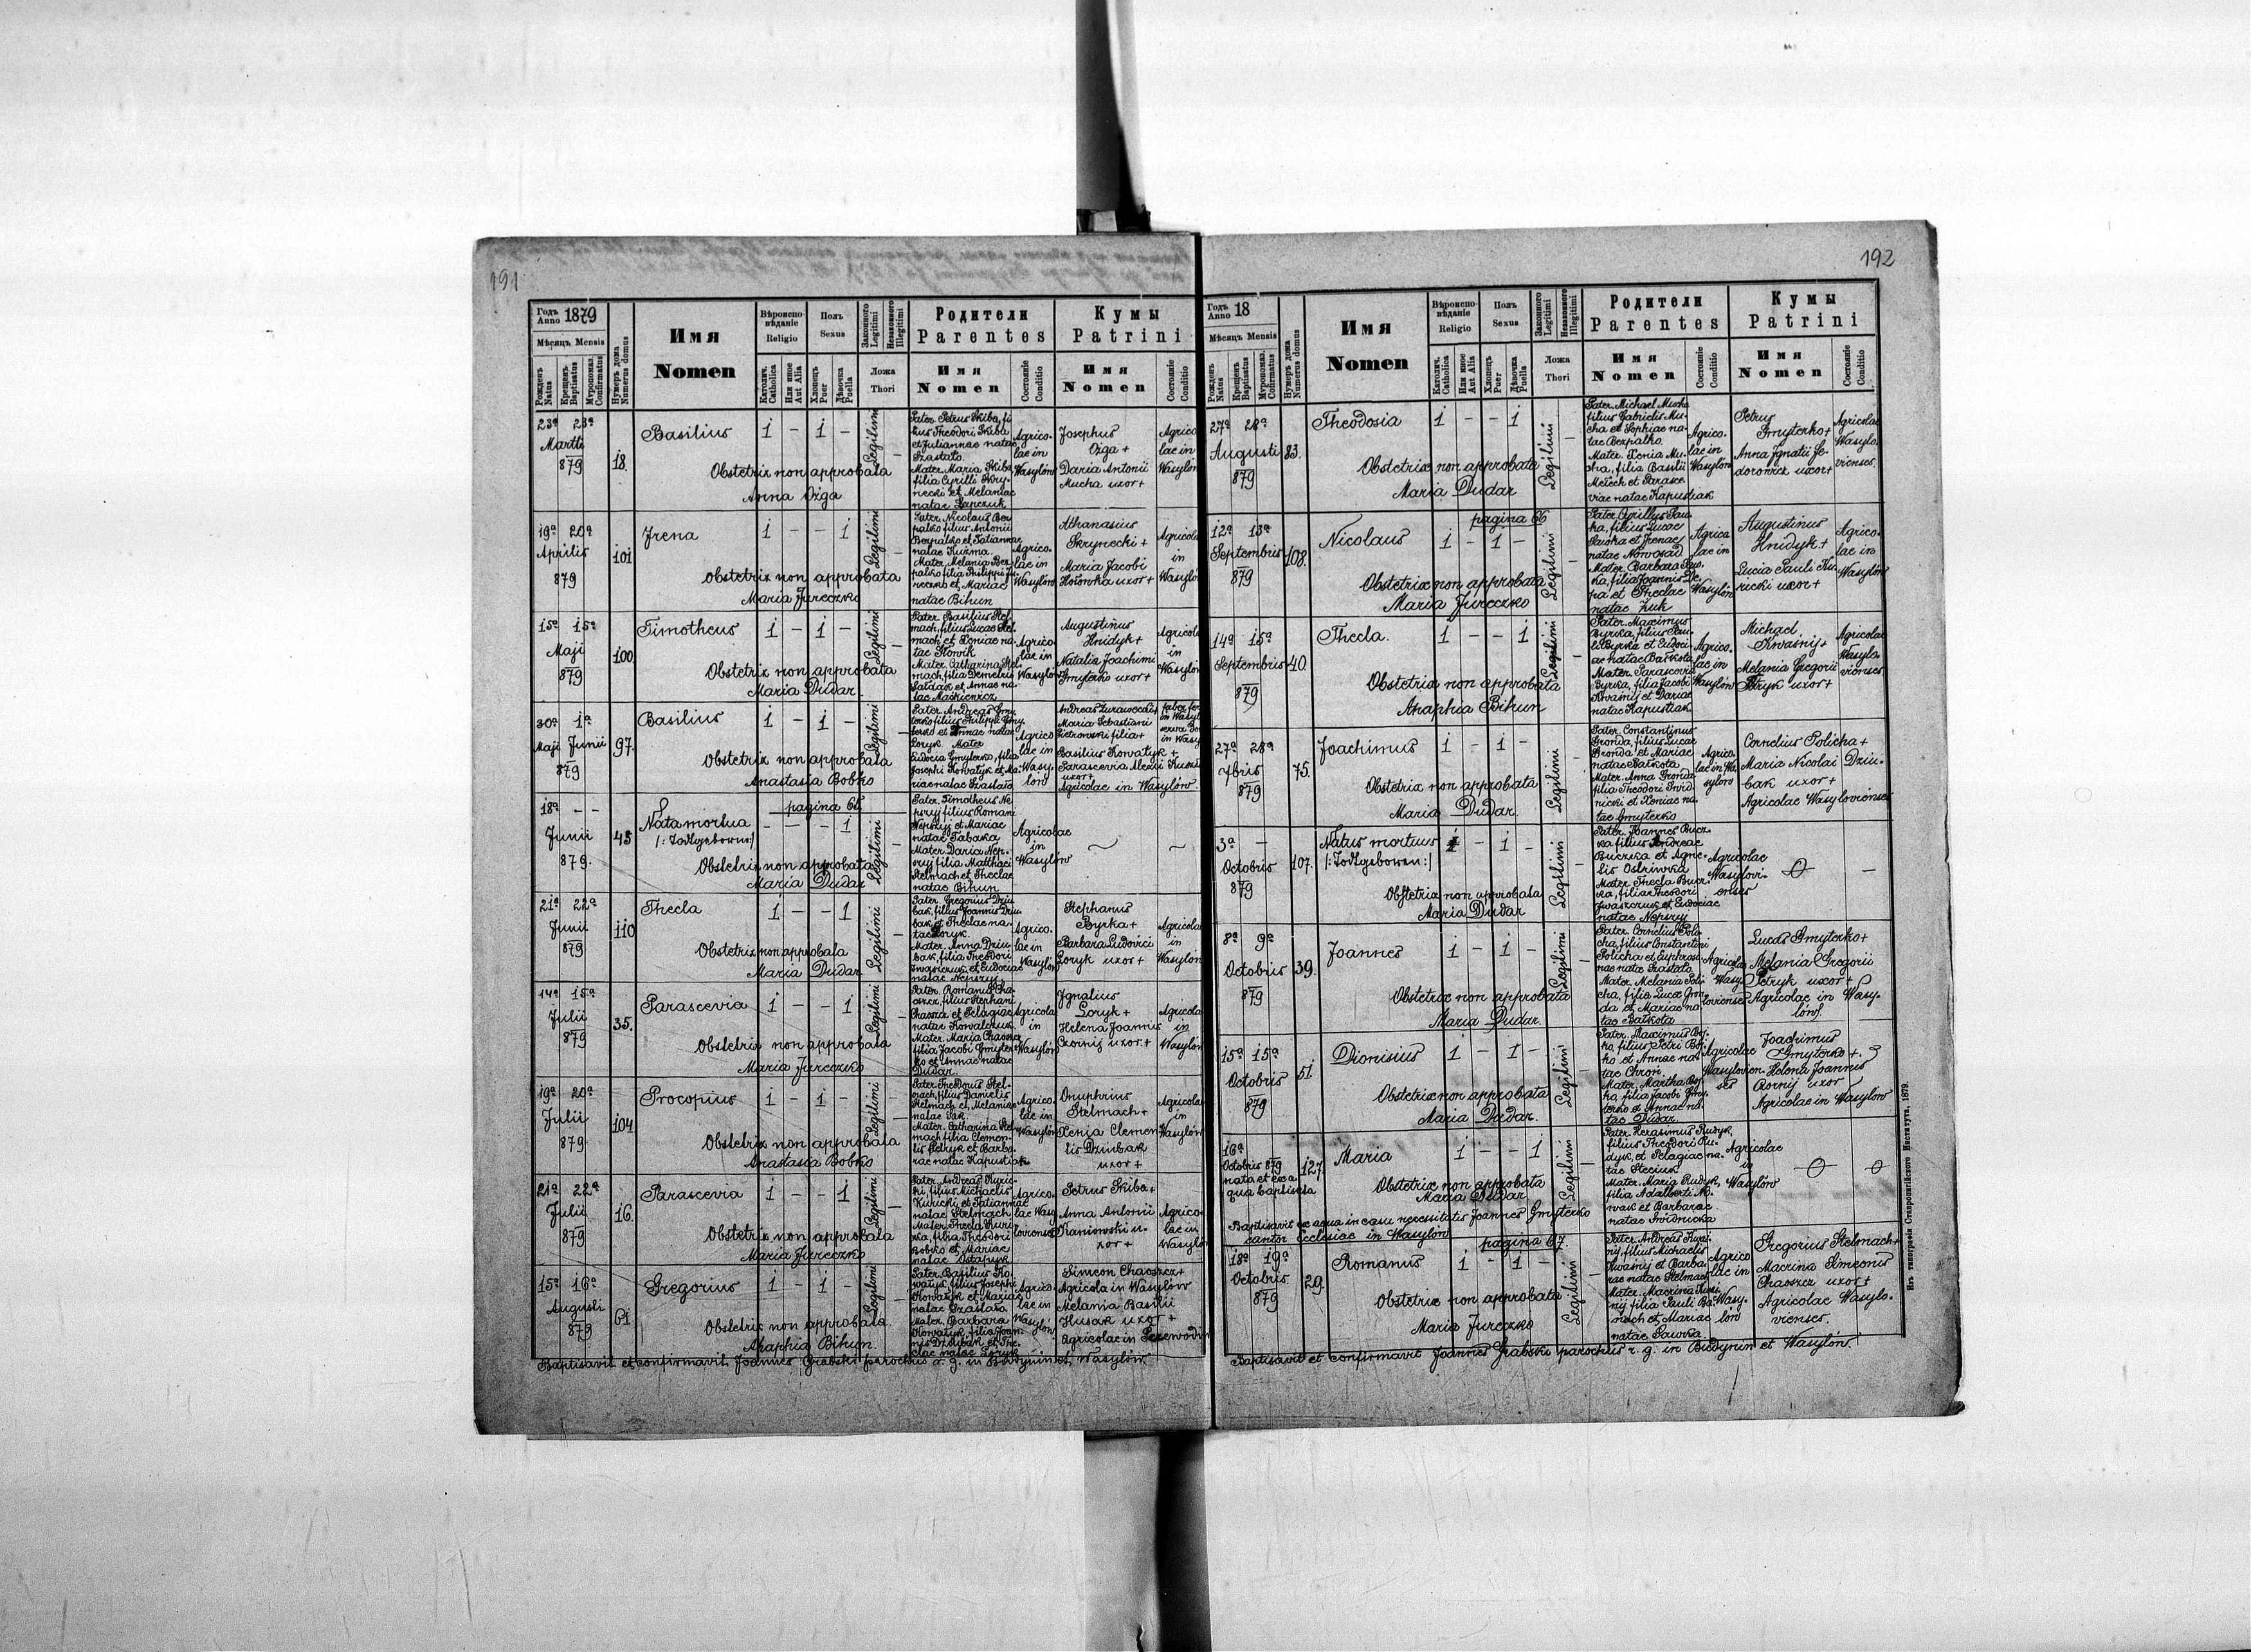 191
Годъ Anno 1879
Мѣсяцъ Mensis
Рожденъ Natus
Крещенъ Baptisatus
Мѵропомаз. Confirmatus
Нумеръ дома Numerus domus
Имя
Nomen
Вѣроисповѣданіе Religio
Католич. Catholica
Или иное Aut Alia
Полъ Sexus
Хлопецъ Puer
Дѣвочка Puella
Законного Legitimi
Незаконного Illegitimi
Ложа Thori
Родители
Parentes
Имя
Nomen
Состояніе Conditio
Кумы
Patrini
Имя
Nomen
Состояніе Conditio
23a 23a
Martii
879
18.
Basilius
1 - 1 -
Legitimi
Obstetrix non approbata
Anna Ożga
Pater Petrus Skiba, fi
lius Theodori Skiba
et Juliannae natae
Szastało.
Mater Maria Skiba
filia Cyrilli Skry-
necki et Melaniae
natae Łapczuk
Agrico-
lae in
Wasylów
Josephus
Ożga +
Daria Antonii
Mucha uxor +
Agrico
lae in
Wasylów
19a 20a
Aprilis
879
101
Irena
1 - - 1
Legitimi
Obstetrix non approbata
Maria Jureczko
Pater Nicolaus Ber
palko filius Antonii
Berpalko et Tatiannae
natae Kuzma.
Mater Melania Ber
palko filia Philippi Ju
reczko et Mariae
natae Bihun
Agrico-
lae in
Wasylów
Athanasius
Skrynecki +
Maria Jacobi
Hołowka uxor +
Agricola
in
Wasylo
15a 15a
Maji
879
100.
Timotheus
1 - 1 -
Legitimi
Obstetrix non approbata
Maria Dudar
Pater Basilius Stel
mach, filius Lucae Stel
mach et Xeniae na
tae Słowik
Mater Catharina Stel
mach filia Demetrii
Sałdak et Annae na
tae Maśkiewicz
Agrico
lae in
Wasylów
Augustinus
Hnidyk +
Natalia Joachimi
Gmyterko uxor +
Agricola
in
Wasylów
30a 1a
Maji Junii
879
97.
Basilius
1 - 1 -
Legitimi
Obstetrix non approbata
Anastasia Bobko
Pater Andreas Gmy
terko filius Philippi Gmy
terko et Annae natae
Łoryk. Mater
Eudocia Gmyterko, filia
Josephi Kowatyk et Ma
riae natae Szastało
Agrico
lae in
Wasy-
lów
Andreas Żurawecki +
Maria Sebastiani
Pietrowski filia +
Basilius Kowatyk +
uxor +
Agricolae in Wasylów
18a - -
Junii
879.
45
Nata mortua
/: Todtgeboren :/
pagina 65
- - - 1
Legitimi
Obstetrix non approbata
Maria Dudar
Pater Timotheus Ne
pryj filius Romani
Nepryj et Mariae
natae Tabaka
Mater Daria Nep-
ryj filia Matthaei
Stelmach et Theclae
natae Bihun
Agricolae
in
Wasylów
21a 22a
Junii
879
110
Thecla
1 - - 1
Legitimi
Obstetrix non approbata
Maria Dudar
Pater Gregorius Dziu
bak, filius Joannis Dziu
bak et Theclae na-
tae Łoryk.
Mater Anna Dziu
bak, filia Theodori
Iwaszczuk et Eudociae
natae Nepryj
Agrico-
lae in
Wasylów
Stephanus
Byrka +
Barbara Ludovici
Łoryk uxor +
Agricola
in
Wasylów
14a 15a
Julii
879
35.
Parascevia
1 - - 1
Legitimi
Obstetrix non approbata
Maria Jureczko
Pater Romanus Cha
oszcz, filius Stephani
Chaoszcz et Pelagiae
natae Kowalczuk.
Mater Maria Chaoszcz
filia Jacobi Gmyter-
ko et Annae natae
Dudar.
Agricola
in
Wasylów
Ignatius
Łoryk +
Helena Joannis
Czornij uxor +
Agricola
in
Wasylów
19a 20a
Julii
879
104
Procopius
1 - 1 -
Legitimi
Obstetrix non approbata
Anastasia Bobko
Pater Theodorus Stel-
mach, filius Danielis
Stelmach et Melaniae
natae Sak
Mater Catharina Stel
mach filia Clemen-
tis Petryk et Barba-
rae natae Kapustiak
Agrico-
lae in
Wasylów
Onuphrius
Stelmach +
Xenia Clemen
tis Dziubak
uxor +
Agricola
in
Wasylów
21a 22a
Julii
879
16.
Parascevia
1 - - 1
Legitimi
Obstetrix non approbata
Maria Jureczko
Pater Andreas Kuric-
ki, filius Michaelis
Kuricki et Tatiannae
natae Stelmach
Mater Thecla Kuric
ka, filia Theodori
Bobko et Mariae
natae Ostapiuk
Agrico-
lae Wasy
lovienses
Petrus Skiba +
Anna Antonii
Kraniowski u-
xor +
Agrico
lae in
Wasylów
15a 16a
Augusti
879
61
Gregorius
1 - 1 -
Legitimi
Obstetrix non approbata
Ahaphia Bihun.
Pater Basilius Ko
watyk, filius Josephi
Kowatyk et Mariae
natae Szastało
Mater Barbara
Kowatyk, filia Joan
nis Dziubak et The-
clae natae Łoryk
Agrico-
lae in
Wasylów
Simeon Chaoszcz +
Agricola in Wasylów
Melania Basilii
Husak uxor +
Agricolae in Perewodów
Baptisavit et confirmavit Joannes Grabski parochus r. g. in Budynin et Wasylów.
192
Годъ Anno 18
Мѣсяцъ Mensis
Рожденъ Natus
Крещенъ Baptisatus
Мѵропомаз. Cofirmatus
Нумеръ дома Numerus domus
Имя
Nomen
Вѣроисповѣданіе Religio
Католич. Catholica
Или иное Aut Alia
Полъ Sexus
Хлопецъ Puer
Дѣвочка Puella
Законного Legitimi
Незаконного Illegitimi
Ложа Thori
Родители
Parentes
Имя
Nomen
Состояніе Conditio
Кумы
Patrini
Имя
Nomen
Состояніе Conditio
27a 28a
Augusti
879
83.
Theodosia
1 - - 1
Legitimi
Obstetrix non approbata
Maria Dudar
Pater Michael Mucha
filius Gabrielis Mu-
cha et Sophiae na-
tae Berpalko.
Mater Xenia Mu-
cha, filia Basilii
Melech et Parasce
viae natae Kapustiak
Agrico-
lae in
Wasylów
Petrus
Gmyterko +
Anna Ignatii Fe-
dorowicz uxor +
Agricolae
Wasylo-
vienses.
12a 13a
Septembris
879
108.
Nicolaus
pagina 66
1 - 1 -
Legitimi
Obstetrix non approbata
Maria Jureczko
Pater Cyrillus Saw
ka, filius Lucae
Sawka et Irenae
natae Nowosad
Mater Barbara Saw
ka, filia Joannis De
pa et Theclae
natae Żuk
Agrico
lae in
Wasylów
Augustinus
Hnidyk +
Lucia Pauli Ku-
ricki uxor +
Agrico-
lae in
Wasylów
14a 15a
Septembris
879
40.
Thecla.
1 - - 1
Legitimi
Obstetrix non approbata
Ahaphia Bihun
Pater Maximus
Byrka, filius Pau
li Byrka et Eudoci-
ae natae Bałkota
Mater Parascevia
Byrka, filia Jacobi
Kwasnij et Dariae
natae Kapustiak
Agrico-
lae in
Wasylów
Michael
Kwasnij +
Melania Gregorii
Petryk uxor +
Agricolae
Wasylo-
vienses
27a 28a
7bris
879
75.
Joachimus
1 - 1 -
Legitimi
Obstetrix non approbata
Maria Dudar
Pater Constantinus
Gronda, filius Lucae
Gronda et Mariae
natae Bałkota
Mater Anna Gronda
filia Theodori Świd
nicki et Xeniae na-
tae Gmyterko
Agrico-
lae in Wa-
sylów
Cornelius Policha +
Maria Nicolai Dziu-
bak uxor +
Agricolae Wasylovienses
3a -
Octobris
879
107.
Natus mortuus
/: Todtgeboren :/
1 - 1 -
Legitimi
Obstetrix non approbata
Maria Dudar
Pater Joannes Bucz
ka filius Andreae
Buczka et Agne-
tis Ostriwka
Mater Thecla Bucz
ka, filia Theodori
Iwaszczuk et Eudociae
natae Nepryj
Agricolae
Wasylovi-
enses
8a 9a
Octobris
879
39.
Joannes
1 - 1 -
Legitimi
Obstetrix non approbata
Maria Dudar.
Pater Cornelius Poli-
cha, filius Constantini
Policha et Euphrosi-
nae natae Szastało
Mater Melania Poli-
cha, filia Lucae Gron
da et Mariae na-
tae Bałkota
Agricolae
Wasy-
lovienses
Lucas Gmyterko +
Melania Gregorii
Petryk uxor +
Agricolae in Wasy-
lów.
15a 15a
Octobris
879
51
Dionisius
1 - 1 -
Legitimi
Obstetrix non approbata
Maria Dudar.
Pater Maximus Boj-
ko, filius Petri Boj
ko et Annae na-
tae Chroń.
Mater Martha Boj
ko, filia Jacobi Gmy-
terko et Annae na-
tae Dudar.
Agricolae
Wasylovien-
ses
Joachimus
Gmyterko +
Helena Joannis
Czornij uxor
Agricolae in Wasylów
16a
Octobris 879
nata et ex a
qua baptisata
127.
Maria
1 - - 1
Legitimi
Obstetrix non approbata
Maria Dudar
Baptisavit ex aqua in casu necessitatis Joannes Gmyterko
cantor Ecclesiae in Wasylów
Pater Gerasimus Rudyk,
filius Theodori Ru-
dyk, et Pelagiae na-
tae Steciuk
Mater Maria Rudyk,
filia Adalberti No-
wak et Barbarae
natae Świdnicka
Agricolae
in
Wasylów
18a 19a
Octobris
879
29.
Romanus
pagina 67.
1 - 1 -
Legitimi
Obstetrix non approbata
Maria Jureczko
Pater Andreas Kwas-
nij, filius Michaelis
Kwasnij et Barba-
rae natae Stelmach
Mater Macrina Kwas
nij filia Pauli Ba-
nach et Mariae
natae Sawka.
Agrico
lae in
Wasy-
lów
Gregorius Stelmach +
Macrina Simeonis
Chaoszcz uxor +
Agricolae Wasylo-
vienses.
Baptisavit et confirmavit Joannes Grabski parochus r. g. in Budynin et Wasylów.
Изъ типографіи Ставропигійского Института, 1879.